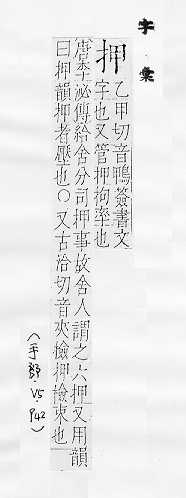 字.彙
押
乙甲切音鴨簽書文
字也又管押拘率也
唐李泌傳給舍分司押事故舍人謂之六押又用韻
曰押韻押者壓也○又古洽切音夾檢押檢束也
(手部.V5.P42)